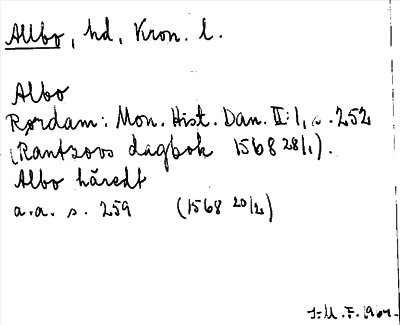 Allbo, hd, Kron. l.
Albo
Rørdam: Mon. Hist. Dan. II:1, s. 252
(Rantzovs dagbok 1568 28/1).
Albo häredt
a.a. s. 259 (1568 20/2)
J-M. F. 1964.